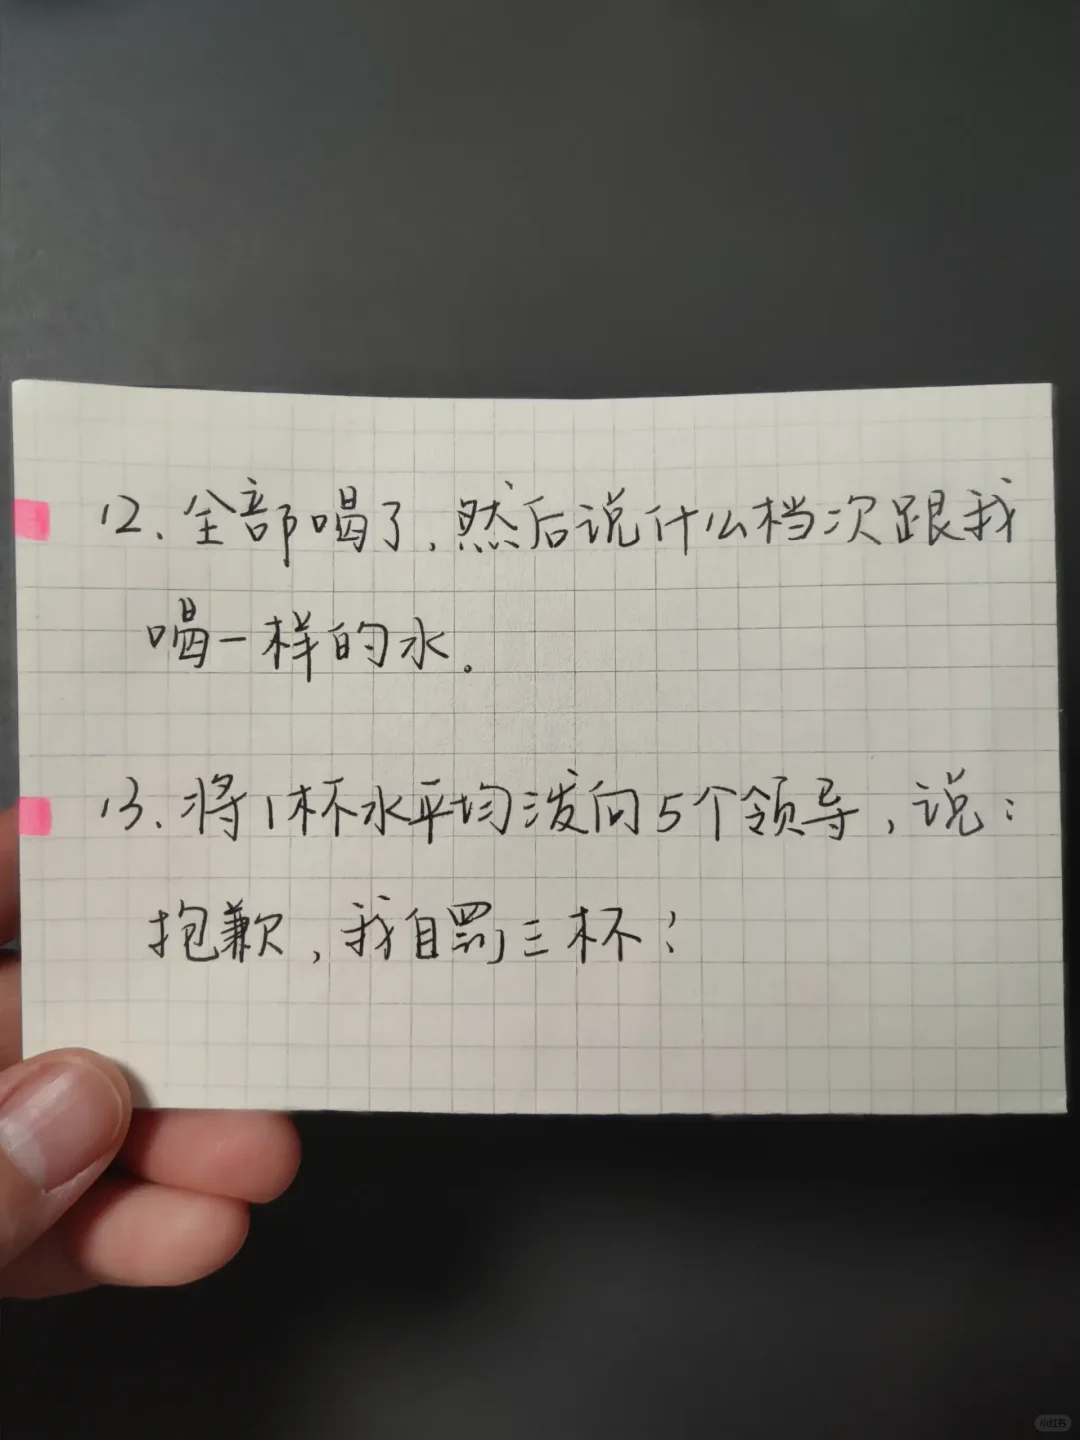 12、全部喝了,然后说什么档次跟我
喝一样的水.
13、将1杯水平均泼向5个领导,说:
抱歉,我自罚三杯!
小红书